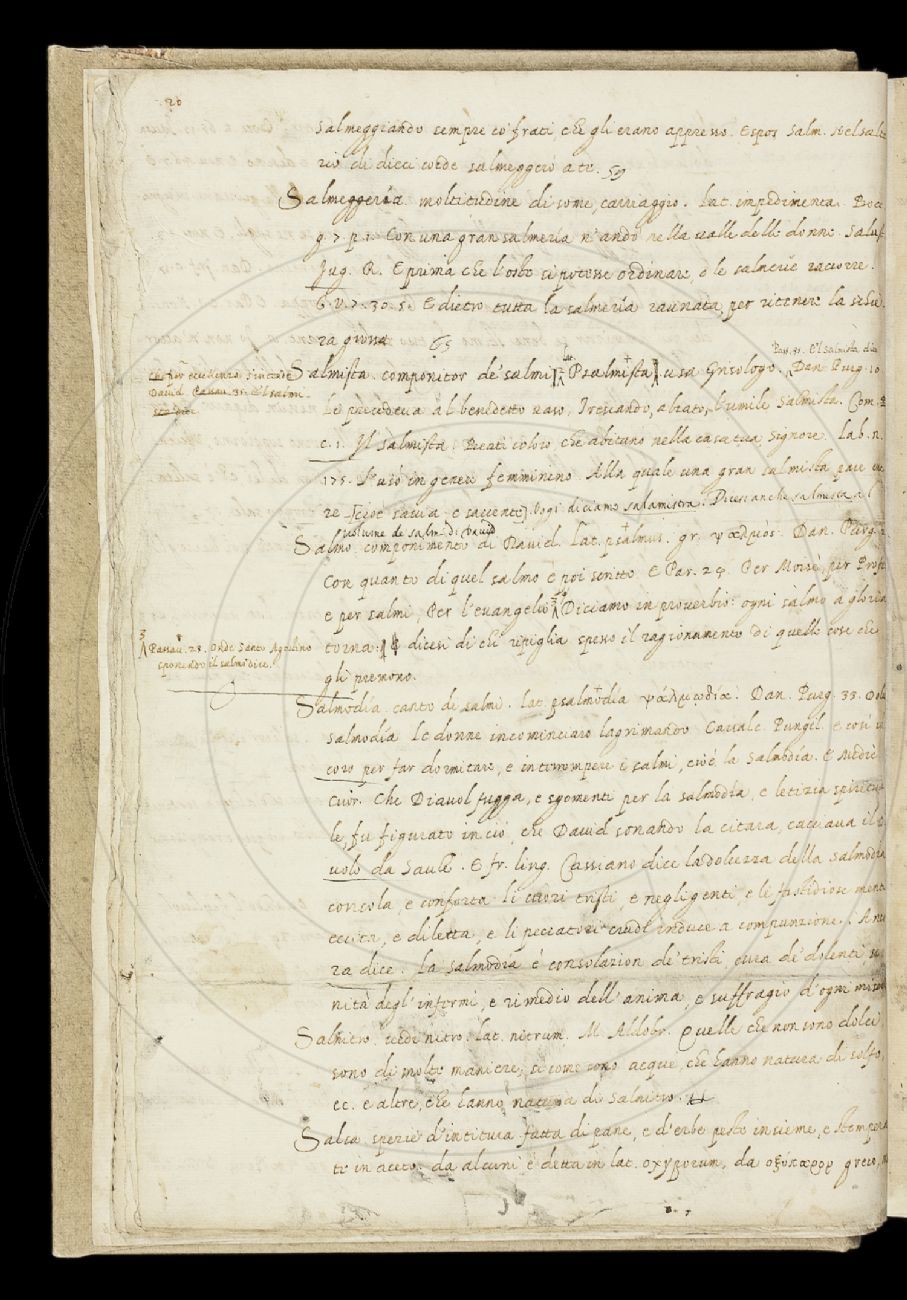 20
salmeggiando sempre co' frati, che gli erano appresso. Espos. Salm. Nel salte
rio di dieci corde salmeggerò a te.
Salmeggeria moltitudine di some, carriaggio. Lat. impedimenta. Bocc.
g. 7. p. 1. Con una gran salmeria n'andò nella valle delle donne. Salust.
Jug. R. E prima che l'oste si potesse ordinare, o le salmerie racorre.
G. V. 7. 30. 5. E dietro tutta la salmería raunata, per ritenere la
ra giunta
Pass. 31. E'l salmista dice
Salmista. componitor de' salmi Psalmista usa Grisologo. Dan. Purg. 10
che per eccellenza s'intende
David. Passau. 31. E'l salmi-
sta dice
Lì precedeva al benedetto vaso, Trescando, alzato, l'umile Salmista. Com.
c. 1. Il Salmista: Beati coloro che abitano nella casa tua, Signore. Lab. n.
175. L'usò in genere femminino. Alla quale una gran salmista pare
re [cioè savia e saccente]. oggi diciamo salamistra.
volume de salmi di David
Salmo. componimento di David. Lat. psalmus. gr. ψαλμὸς. Dan. Purg. 2
Con quanto di quel salmo è poi scritto. E Par. 24. Per Moisè, per Profe
e per salmi, Per l'evangelio Diciamo in proverbio: ogni salmo in gloria
torna: dicesi di chi ripiglia spesso il ragionamento di quelle cose che
Passau. 28. Onde Santo Agostino
sponendo il salmo dice.
gli premono.
Salmodía. canto di salmi. lat. psalmodia ψαλμῳδία. Dan. Purg. 33. Dolce
salmodía Le donne incominciaro lagrimando. Cavalc. Pungil. e così in
coro per far dormitare, e interrompere i salmi, cioè la salmodía. E Medic.
Cuor. Che Diavol fugga, e sgomenti per la salmodía, e letizia spiritua
le, fu figurato in ciò, che David sonando la citara, cacciava il dia
volo da Saul. E fr. ling. Cassiano dice la dolcezza della salmodia
consola, e conforta li cuori tristi, e negligenti, e le fastidiose menti
eccita, e diletta, e li peccatori crudi induce a compunzione. Anco
ra dice. La salmodia è consolazion de' tristi, cura de' dolenti, sa
nità degl'infermi, e rimedio dell'anima, e suffragio d'ogni
Salnitro. vedi nitro. lat. nitrum. M. Aldobr. Quelle che non sono dolci,
sono di molte maniere, sì come sono acque, che hanno natura di solfo,
ec. e altre, che hanno natura di Salnitro.
Salsa spezie d'intitura fatta di pane, e d'erbe peste insieme, e stempera
te in aceto. da alcuni è detta in lat. oxyporum, da οξύπορον greco,